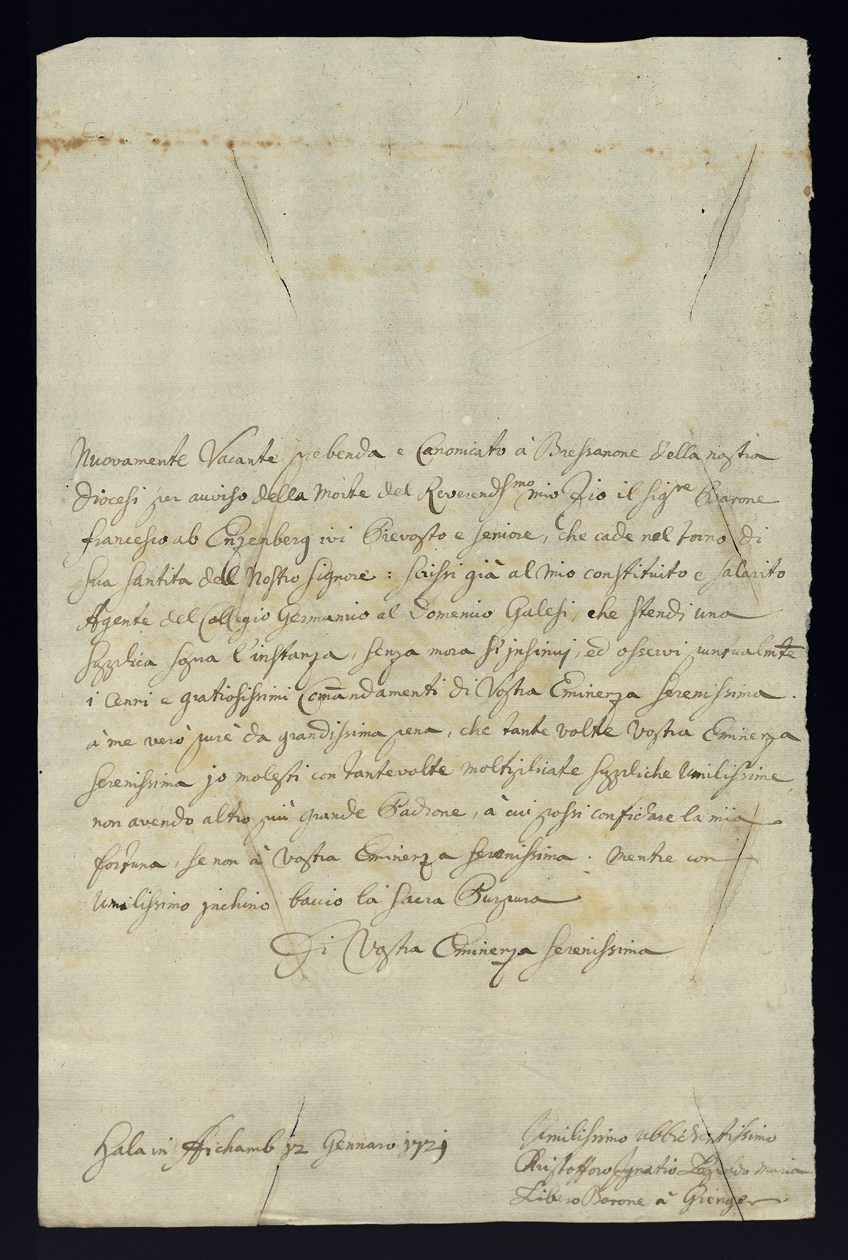 Nuovamente Vacante prebenda e Canonicato à Bressanone della nostra
diocesi per auviso della Morte del Reverendsmo mio Zio il sigre Barone
francesco ab Enzenberg ivi Prevosto e seniore, che cade nel torno di
sua santita dell Nostro signore: scrissi già al mio constituito e salarito
Agente del Collegio Germanico al Domenico Galesi, che stendi una
supplica sopra l'instanza, senza mora s'jnsinuj, ed osservi puntualmte
i Cenni e gratiosissimi Comandamenti di Vostra Eminenza serenissima.
à me verò pure da grandissima pena, che tante volte Vostra Eminenza
serenissima jo molesti con tantevolte moltiplicate suppliche Umilissime,
non avendo altro più grande Padrone, à cui possi confidare la mia
fortuna, se non à Vostra Eminenza serenissima. Mentre con
Umilissimo jnchino baccio la sacra Purpura
Di Vostra Eminenza serenissima
Hala in 12 Gennaro 1721
Umilissimo ubbidientissimo
Christofforo Ignatio Leopoldo Maria
Libero Barone à Gienger